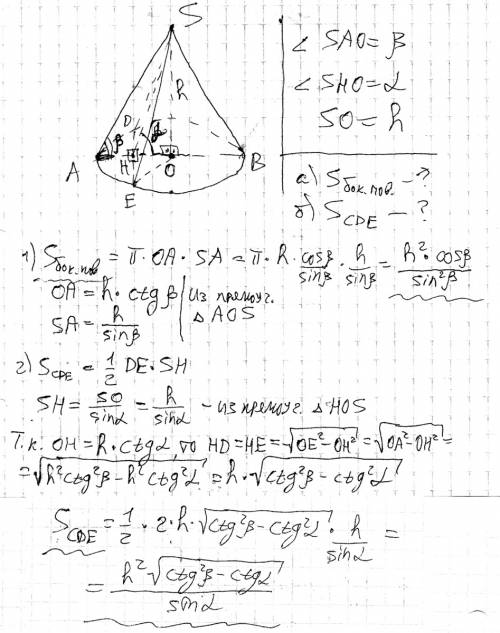 S
h
D
β
α
A
H
O
B
E
∠ SAO = β
∠ SHO = α
SO = h
а) Sбок.пов. — ?
б) SCDE — ?
1) Sбок.пов = π · OA · SA = π · h · cosβ/sinβ · h/sinβ = h² · cosβ/sin²β
OA = h · ctg β | из прямоуг.
SA = h/sinβ | △ AOS
2) SCDE = 1/2 DE · SH
SH = SO/sinα = h/sinα – из прямоуг. △ HOS
Т.к. OH = h · ctgα, то HD = HE = √(OE² – OH²) = √(OA² – OH²) =
= √(h²ctg²β – h²ctg²α) = h · √(ctg²β – ctg²α)
SCDE = 1/2 · 2 · h · √(ctg²β – ctg²α) · h/sinα =
= h² √(ctg²β – ctgα)/sinα